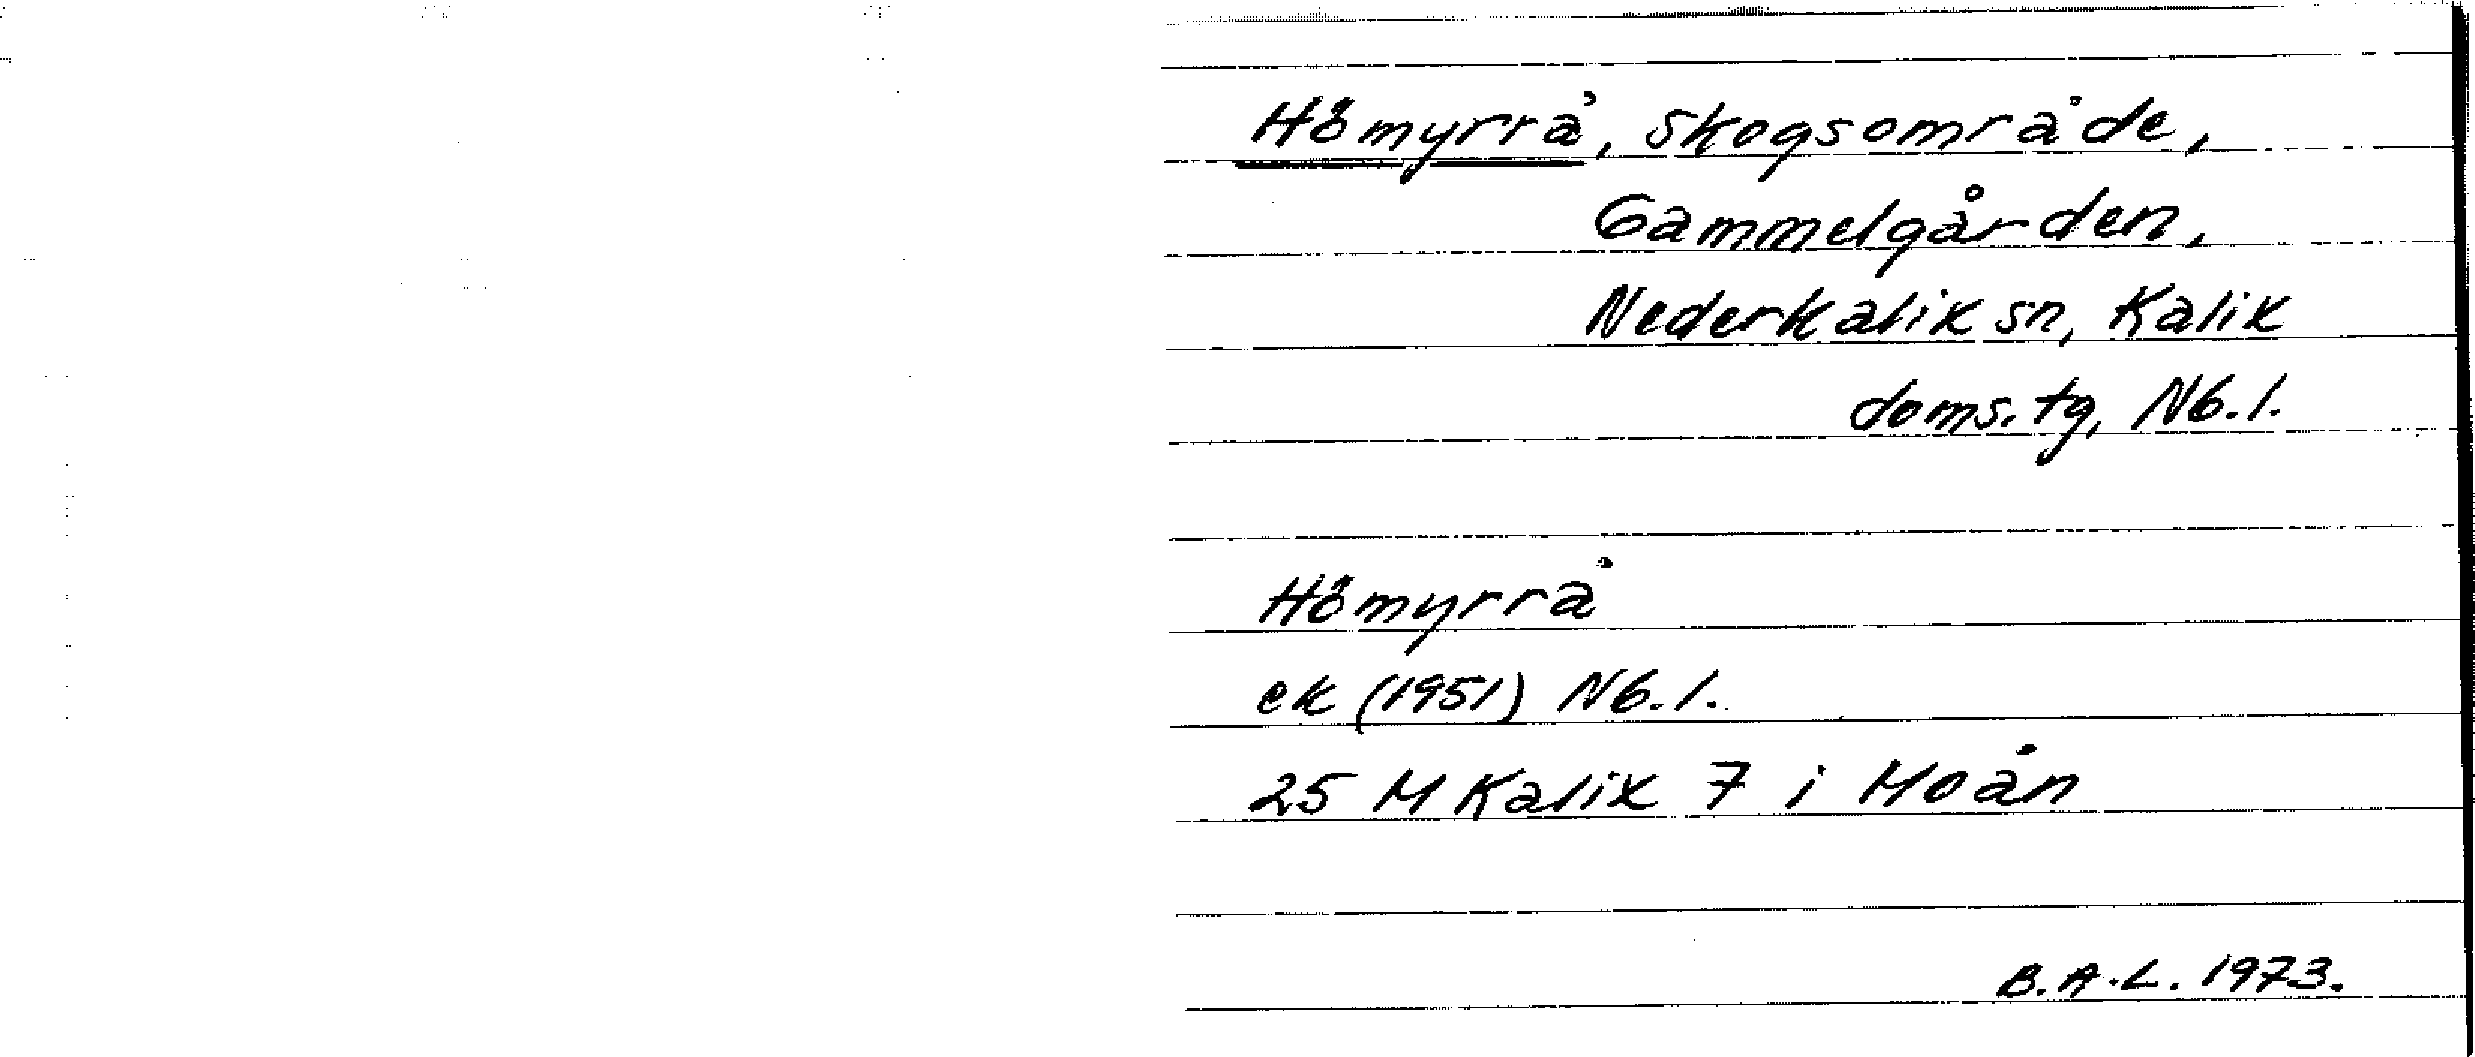 Hömyrrå, skogsområde,
Gammelgården,
Nederkalix sn, Kalix
doms.tg, Nb.l.
Hömyrrå
ek (1951) Nb.l.
25 M Kalix 7 i Moån
B.A.L. 1973.